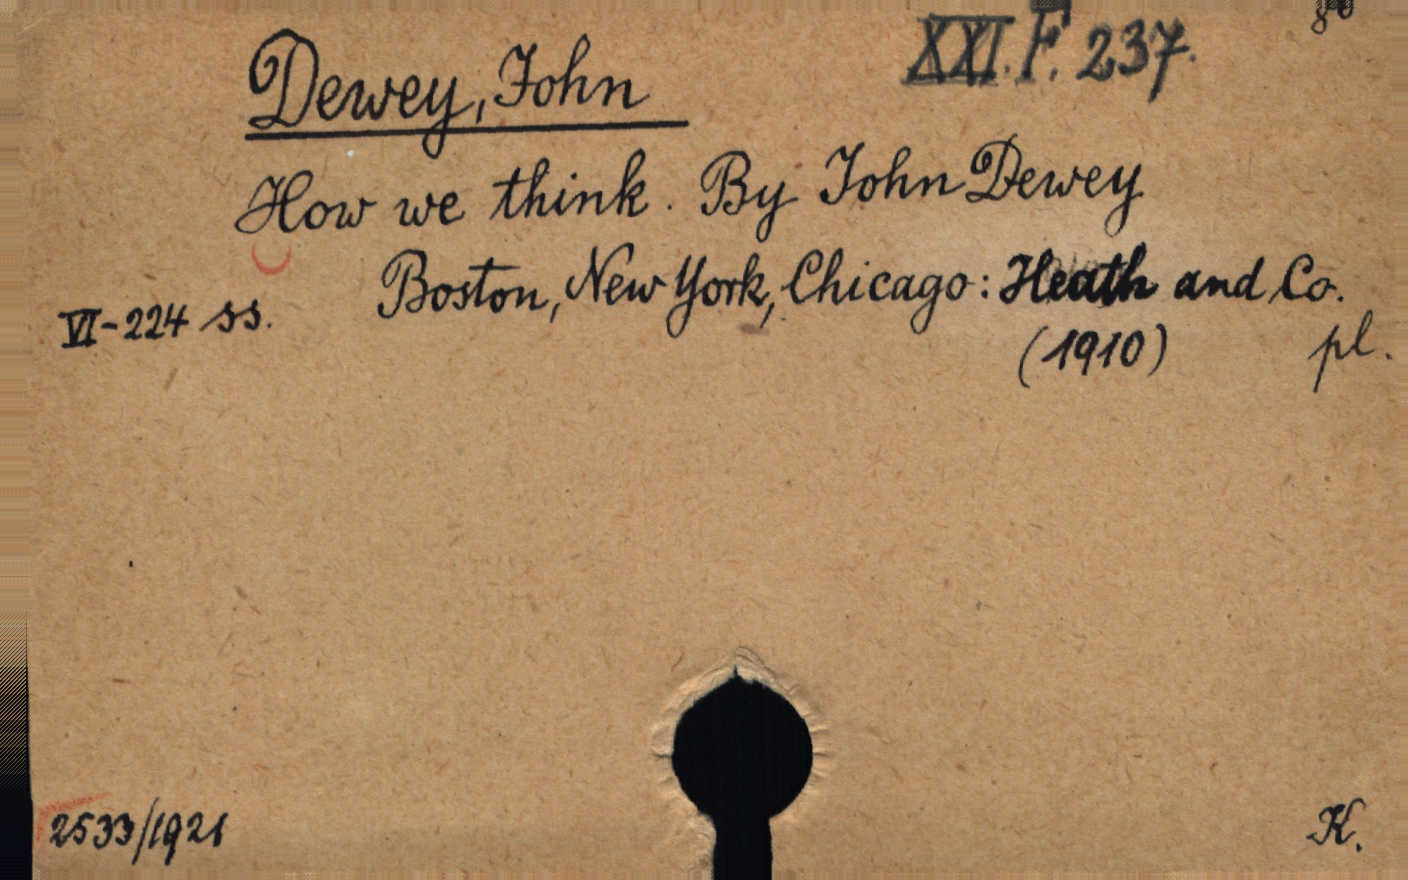 XXI. F. 237.
8°
Dewey, John
How we think. By John Dewey
Boston, New York, Chicago: Heath and Co.
VI-224 ss.
(1910)
pl.
2533/1921
K.